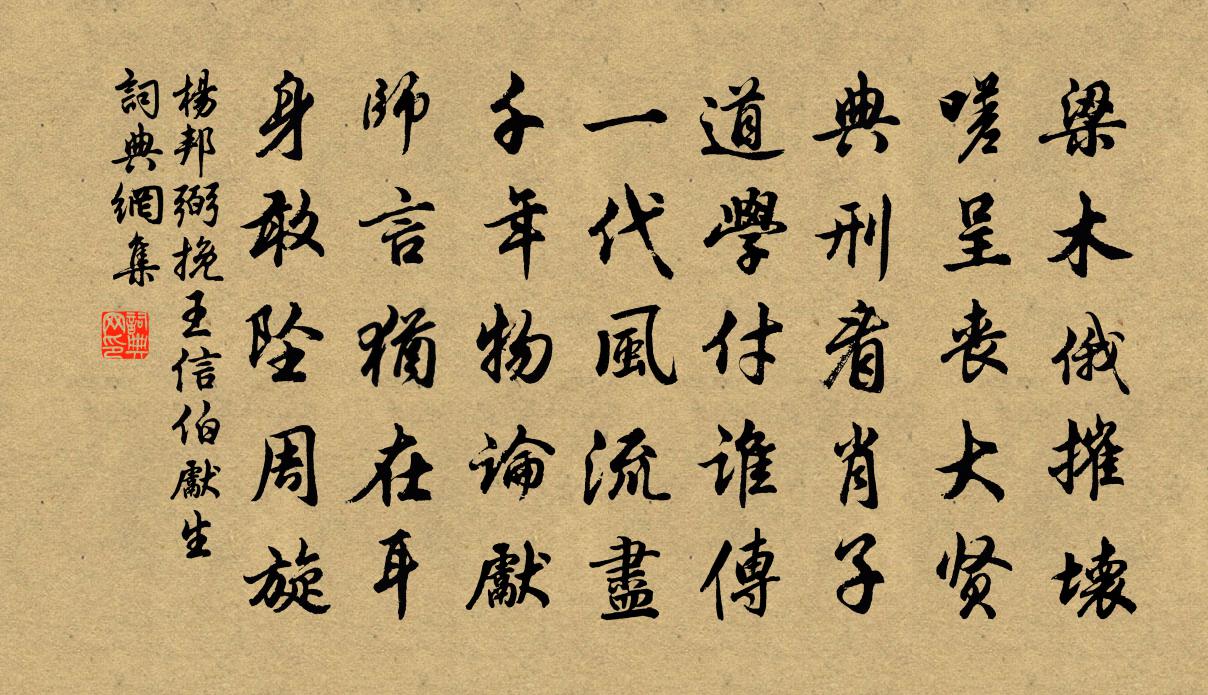 梁木俄摧壞
嗟呈丧大贤
典刑看肖子
道學付誰傳
一代風流盡
千年物論獻
師言猶在耳
身敢坠周旋
楊邦弼挽王信伯獻生
詞典網集
詞典
网印